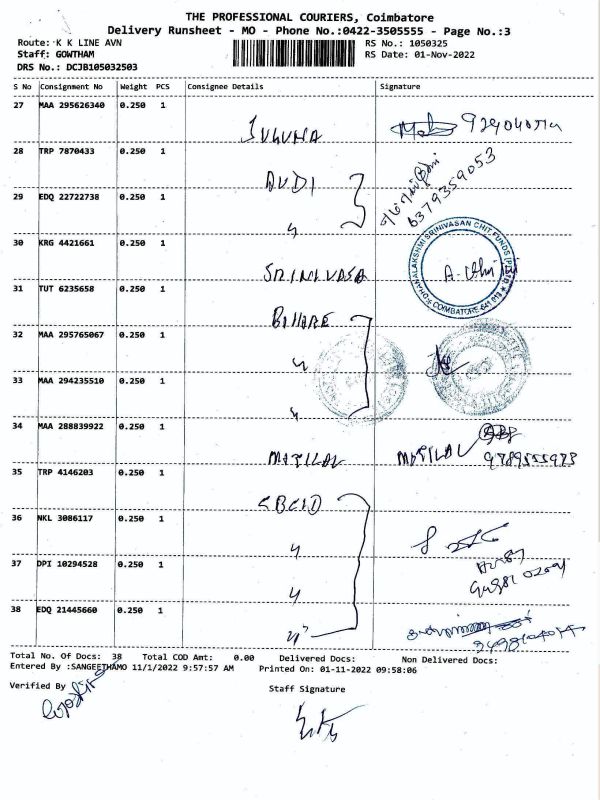 THE PROFESSIONAL COURIERS, Coimbatore
Delivery Runsheet - MO - Phone No.:0422-3505555 - Page No.:3
Route: K K LINE AVN
RS No.: 1050325
Staff: GOWTHAM
RS Date: 01-Nov-2022
DRS No.: DCJB105032503
S No Consignment No Weight PCS Consignee Details Signature
27 MAA 295626340 0.250 1
28 TRP 7870433 0.250 1
AUDI
6379359053
29 EDQ 22722738 0.250 1
30 KRG 4421661 0.250 1
SRINIVASA
MOHANALAKSHMI SRINIVASAN CHIT FUNDS (P) LTD
COIMBATORE-641 018
31 TUT 6235658 0.250 1
32 MAA 295765067 0.250 1
33 MAA 294235510 0.250 1
34 MAA 288839922 0.250 1
MATILAL MATILAL
35 TRP 4146203 0.250 1
36 NKL 3086117 0.250 1
37 DPI 10294528 0.250 1
38 EDQ 21445660 0.250 1
Total No. Of Docs: 38 Total COD Amt: 0.00 Delivered Docs: Non Delivered Docs:
Entered By :SANGEETHAMO 11/1/2022 9:57:57 AM Printed On: 01-11-2022 09:58:06
Verified By
Staff Signature